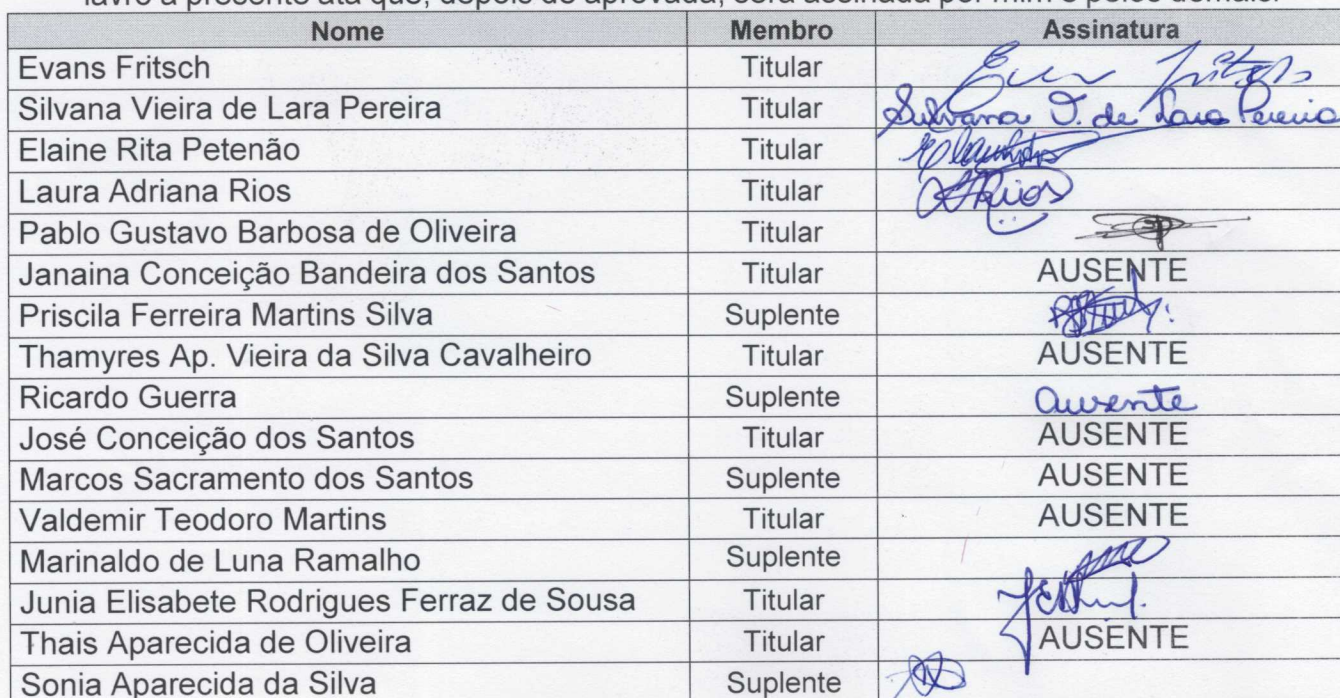 lavro a presente ata que, depois de aprovada, será assinada por mim e pelos demais.
Nome Membro Assinatura
Evans Fritsch Titular
Silvana Vieira de Lara Pereira Titular Silvana V. de Lara Pereira
Elaine Rita Petenão Titular
Laura Adriana Rios Titular LARios
Pablo Gustavo Barbosa de Oliveira Titular
Janaina Conceição Bandeira dos Santos Titular AUSENTE
Priscila Ferreira Martins Silva Suplente
Thamyres Ap. Vieira da Silva Cavalheiro Titular AUSENTE
Ricardo Guerra Suplente ausente
José Conceição dos Santos Titular AUSENTE
Marcos Sacramento dos Santos Suplente AUSENTE
Valdemir Teodoro Martins Titular AUSENTE
Marinaldo de Luna Ramalho Suplente
Junia Elisabete Rodrigues Ferraz de Sousa Titular
Thais Aparecida de Oliveira Titular AUSENTE
Sonia Aparecida da Silva Suplente